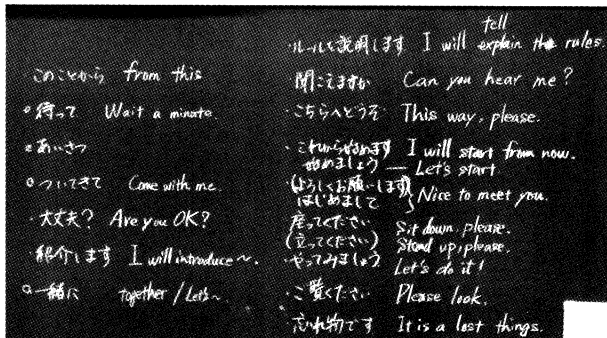 ・このことから from this
・待って Wait a minute.
・あいさつ
・ついてきて Come with me.
・大丈夫? Are you OK?
・紹介します I will introduce ~.
・一緒に together / Let's ~.
tell
・ルールを説明します I will explain the rules
聞こえますか Can you hear me?
・こちらへどうぞ This way, please.
・これから始めます I will start from now.
始めましょう Let's start
(よろしくお願いします)
はじめまして Nice to meet you.
座ってください Sit down, please.
(立ってください) Stand up, please.
・やってみましょう Let's do it!
・ご覧ください Please look.
忘れ物です It is a lost things.